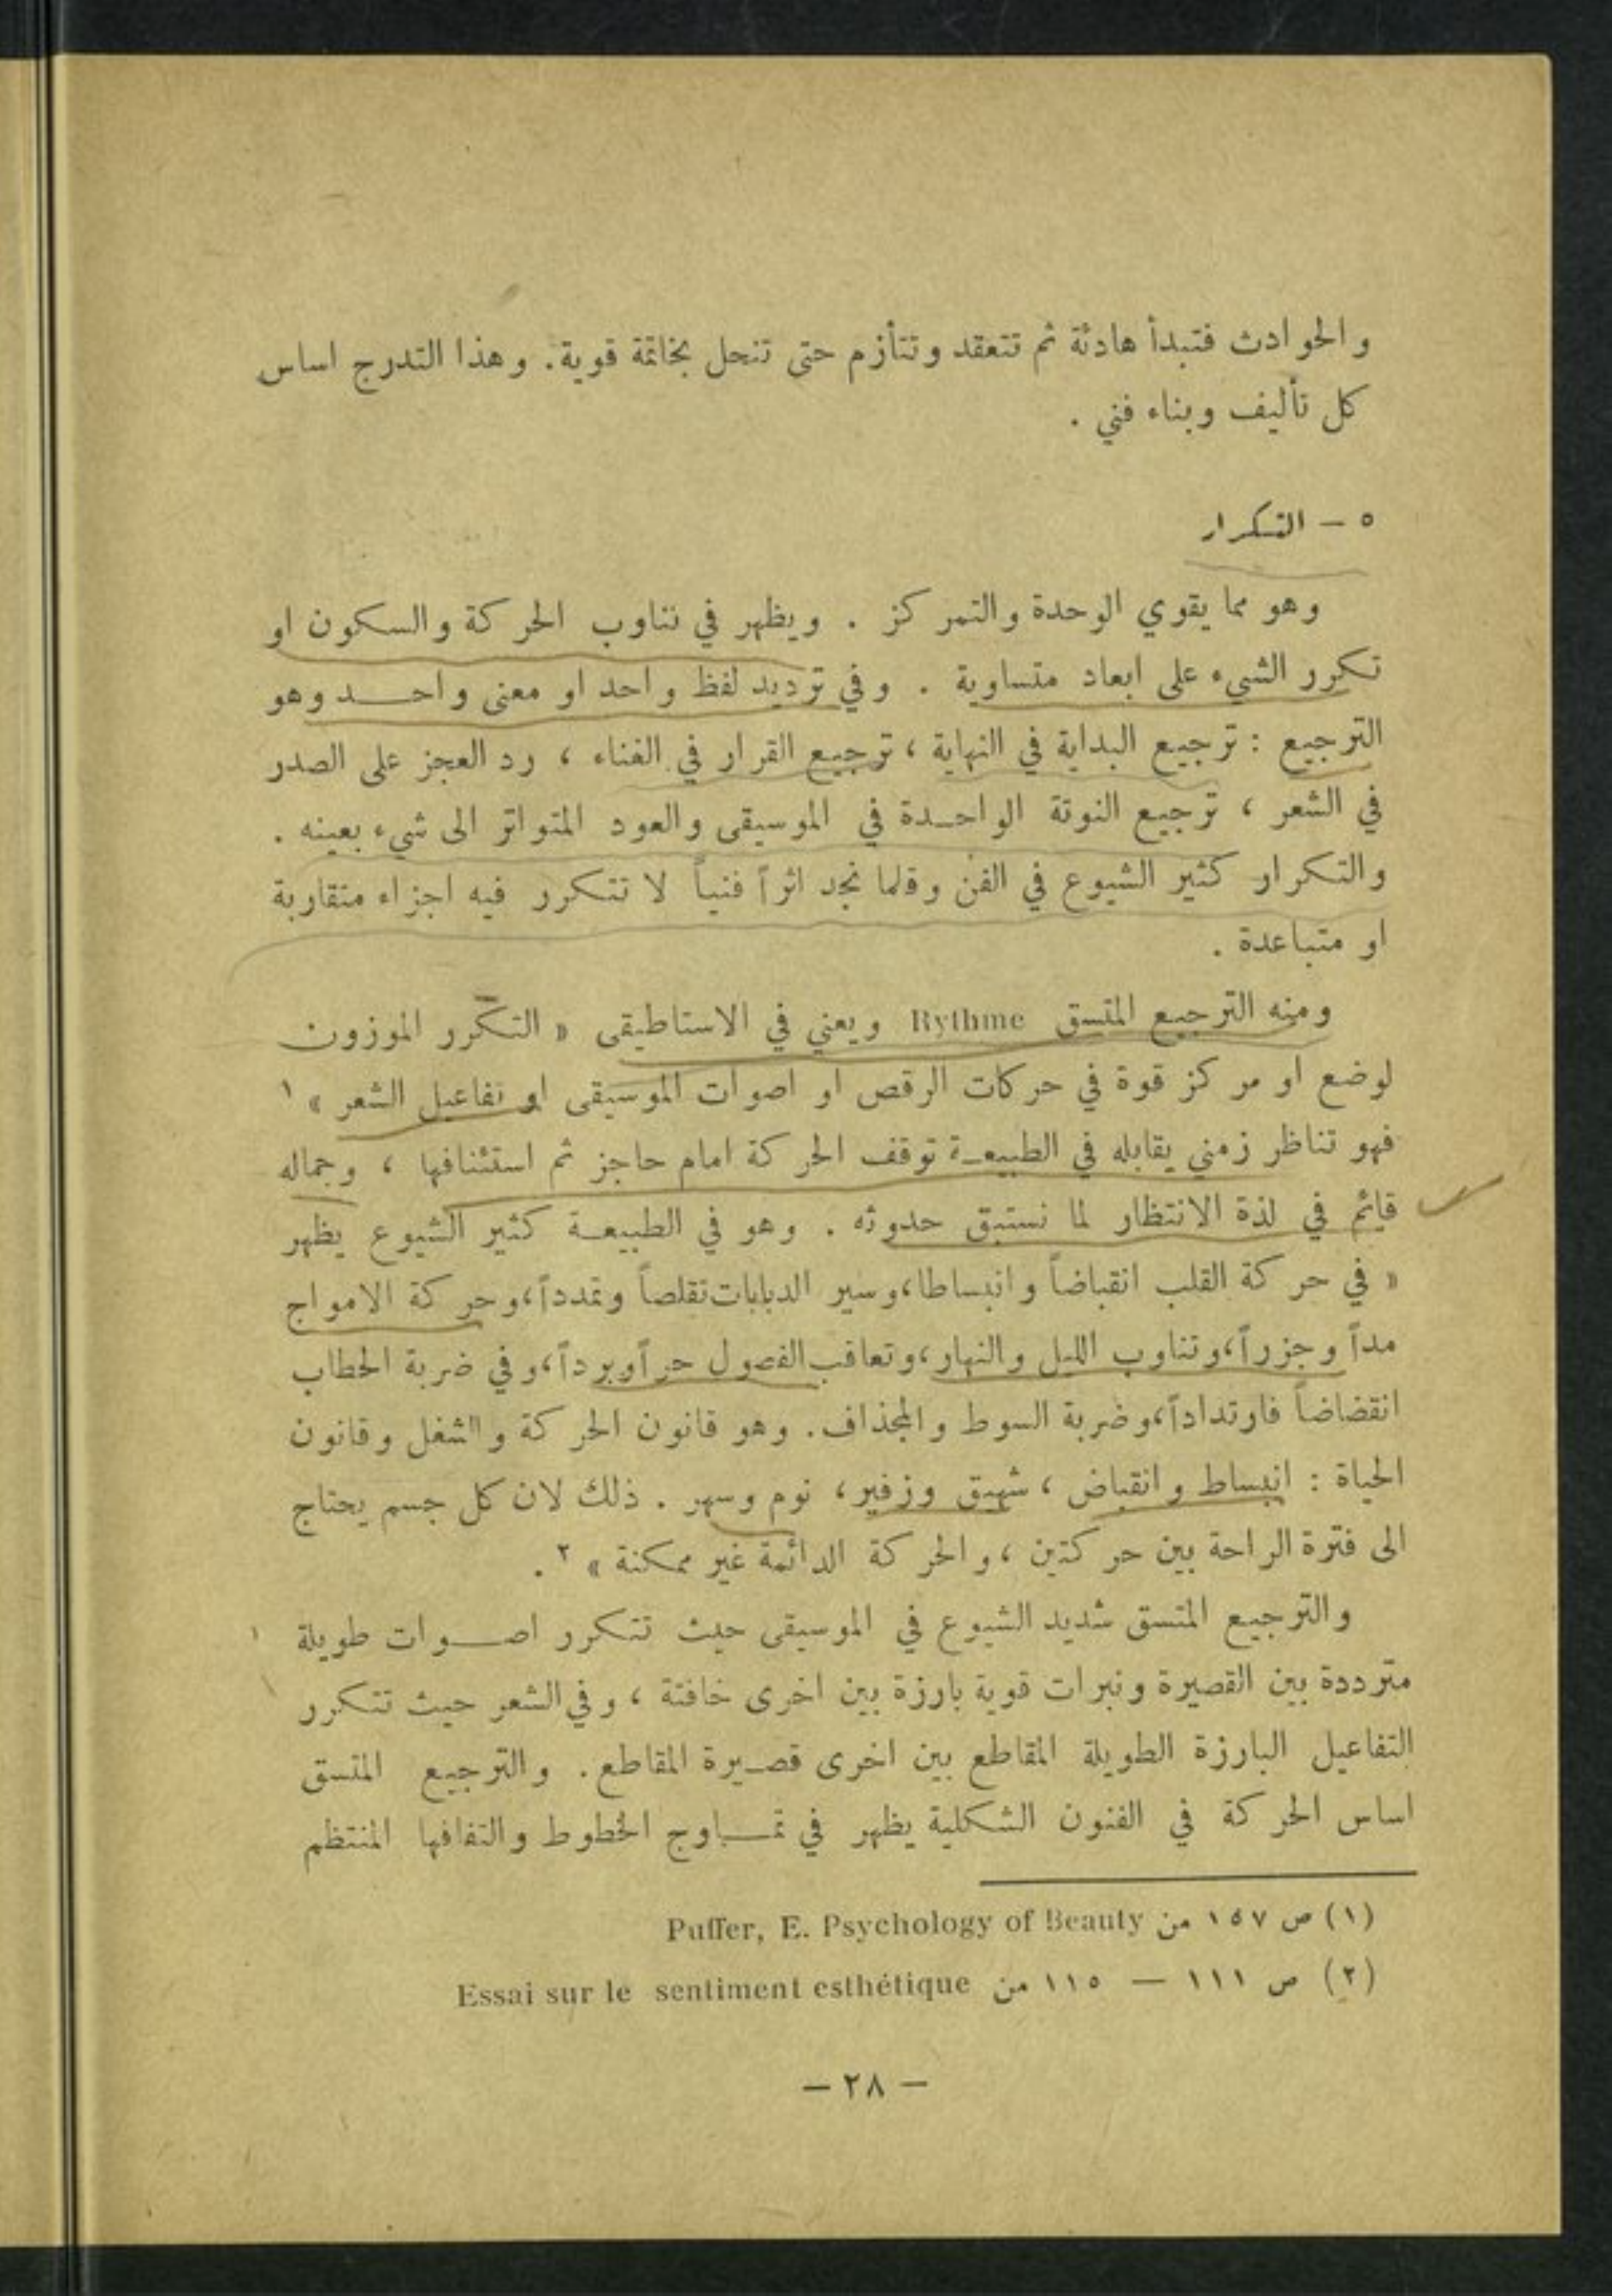 والحوادث فتبدأ هادئة ثم تتعقد وتتأزم حتى تنحل بخاتمة قوية. وهذا التدرج اساس
كل تأليف وبناء فني .
٥ – التكرار
وهو مما يقوي الوحدة والتمركز . ويظهر في تناوب الحركة والسكون او
تكرر الشيء على ابعاد متساوية . وفي ترديد لفظ واحد او معنى واحد وهو
الترجيع : ترجيع البداية في النهاية ، ترجيع القرار في الغناء ، رد العجز على الصدر
في الشعر ، ترجيع النوتة الواحدة في الموسيقى والعود المتواتر الى شيء بعينه .
والتكرار كثير الشيوع في الفن وقلما نجد اثراً فنياً لا تتكرر فيه اجزاء متقاربة
او متباعدة .
ومنه الترجيع المتسق Rythme ويعني في الاستاطيقى « التكرّر الموزون
لوضع او مركز قوة في حركات الرقص او اصوات الموسيقى او تفاعيل الشعر » ١
فهو تناظر زمني يقابله في الطبيعة توقف الحركة امام حاجز ثم استئنافها ، وجماله
قائم في لذة الانتظار لما نستبق حدوثه . وهو في الطبيعة كثير الشيوع يظهر
« في حركة القلب انقباضاً وانبساطا، وسير الدبابات تقلصاً وتمدداً، وحركة الامواج
مداً وجزراً، وتناوب الليل والنهار، وتعاقب الفصول حراً وبرداً، وفي ضربة الحطاب
انقضاضاً فارتداداً، وضربة السوط والمجذاف. وهو قانون الحركة والشغل وقانون
الحياة : انبساط وانقباض ، شهيق وزفير، نوم وسهر . ذلك لان كل جسم يحتاج
الى فترة الراحة بين حركتين ، والحركة الدائمة غير ممكنة » ٢ .
والترجيع المتسق شديد الشيوع في الموسيقى حيث تتكرر اصوات طويلة
مترددة بين القصيرة ونبرات قوية بارزة بين اخرى خافتة ، وفي الشعر حيث تتكرر
التفاعيل البارزة الطويلة المقاطع بين اخرى قصيرة المقاطع. والترجيع المتسق
اساس الحركة في الفنون الشكلية يظهر في تماوج الخطوط والتفافها المنتظم
(١) ص ١٥٧ من Puffer, E. Psychology of Beauty
(٢) ص ١١١ — ١١٥ من Essai sur le sentiment esthétique
– ٢٨ –